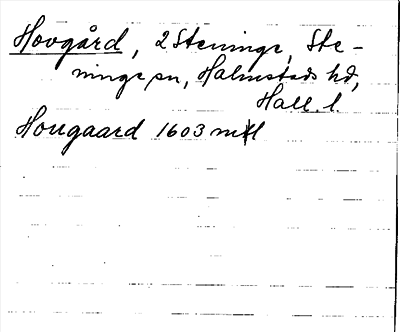 Hovgård, 2 Steninge, Ste-
ninge sn, Halmstads hd,
Hall. l.
Hougaard 1603 mtl